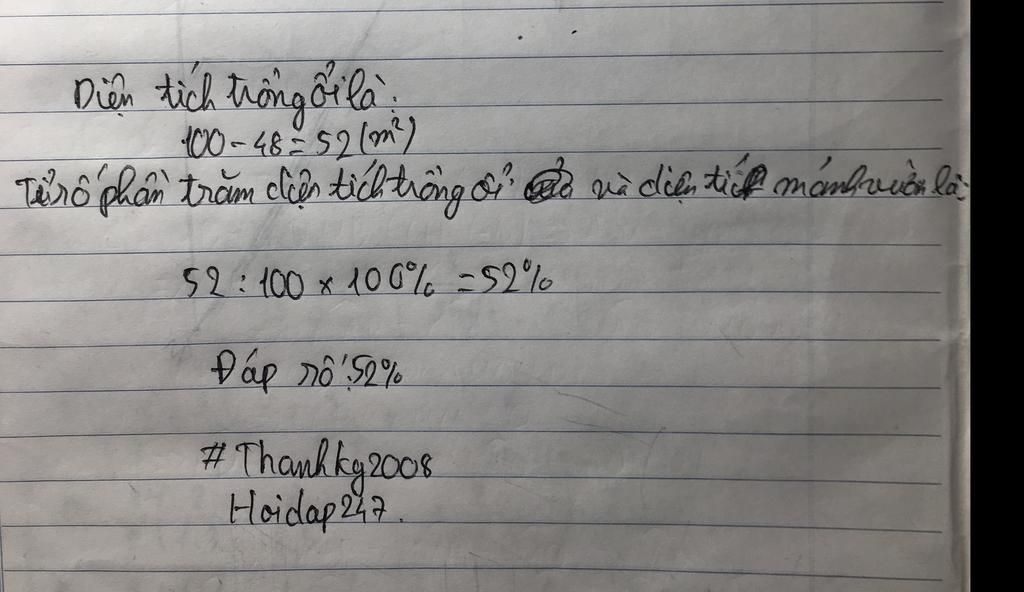 Diện tích trồng ổi là:
100 - 48 = 52 (m²)
Tỉ số phần trăm diện tích trồng ổi và diện tích mảnh vườn là:
52 : 100 x 100% = 52%
Đáp số: 52%
# Thanhkg2008
Hoidap247.